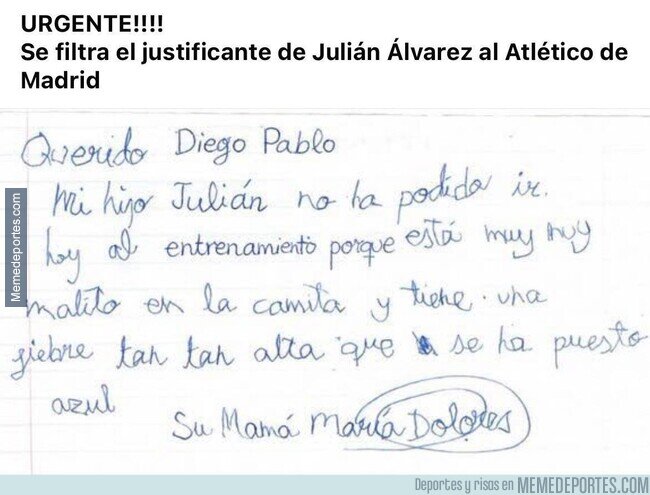 URGENTE!!!!
Se filtra el justificante de Julián Álvarez al Atlético de
Madrid
Querido Diego Pablo
Mi hijo Julián no ha podido ir.
hoy al entrenamiento porque está muy muy
malito en la camita y tiene una
fiebre tan tan alta que se ha puesto
azul
Su Mamá María Dolores
Memedeportes.com
Deportes y risas en MEMEDEPORTES.COM